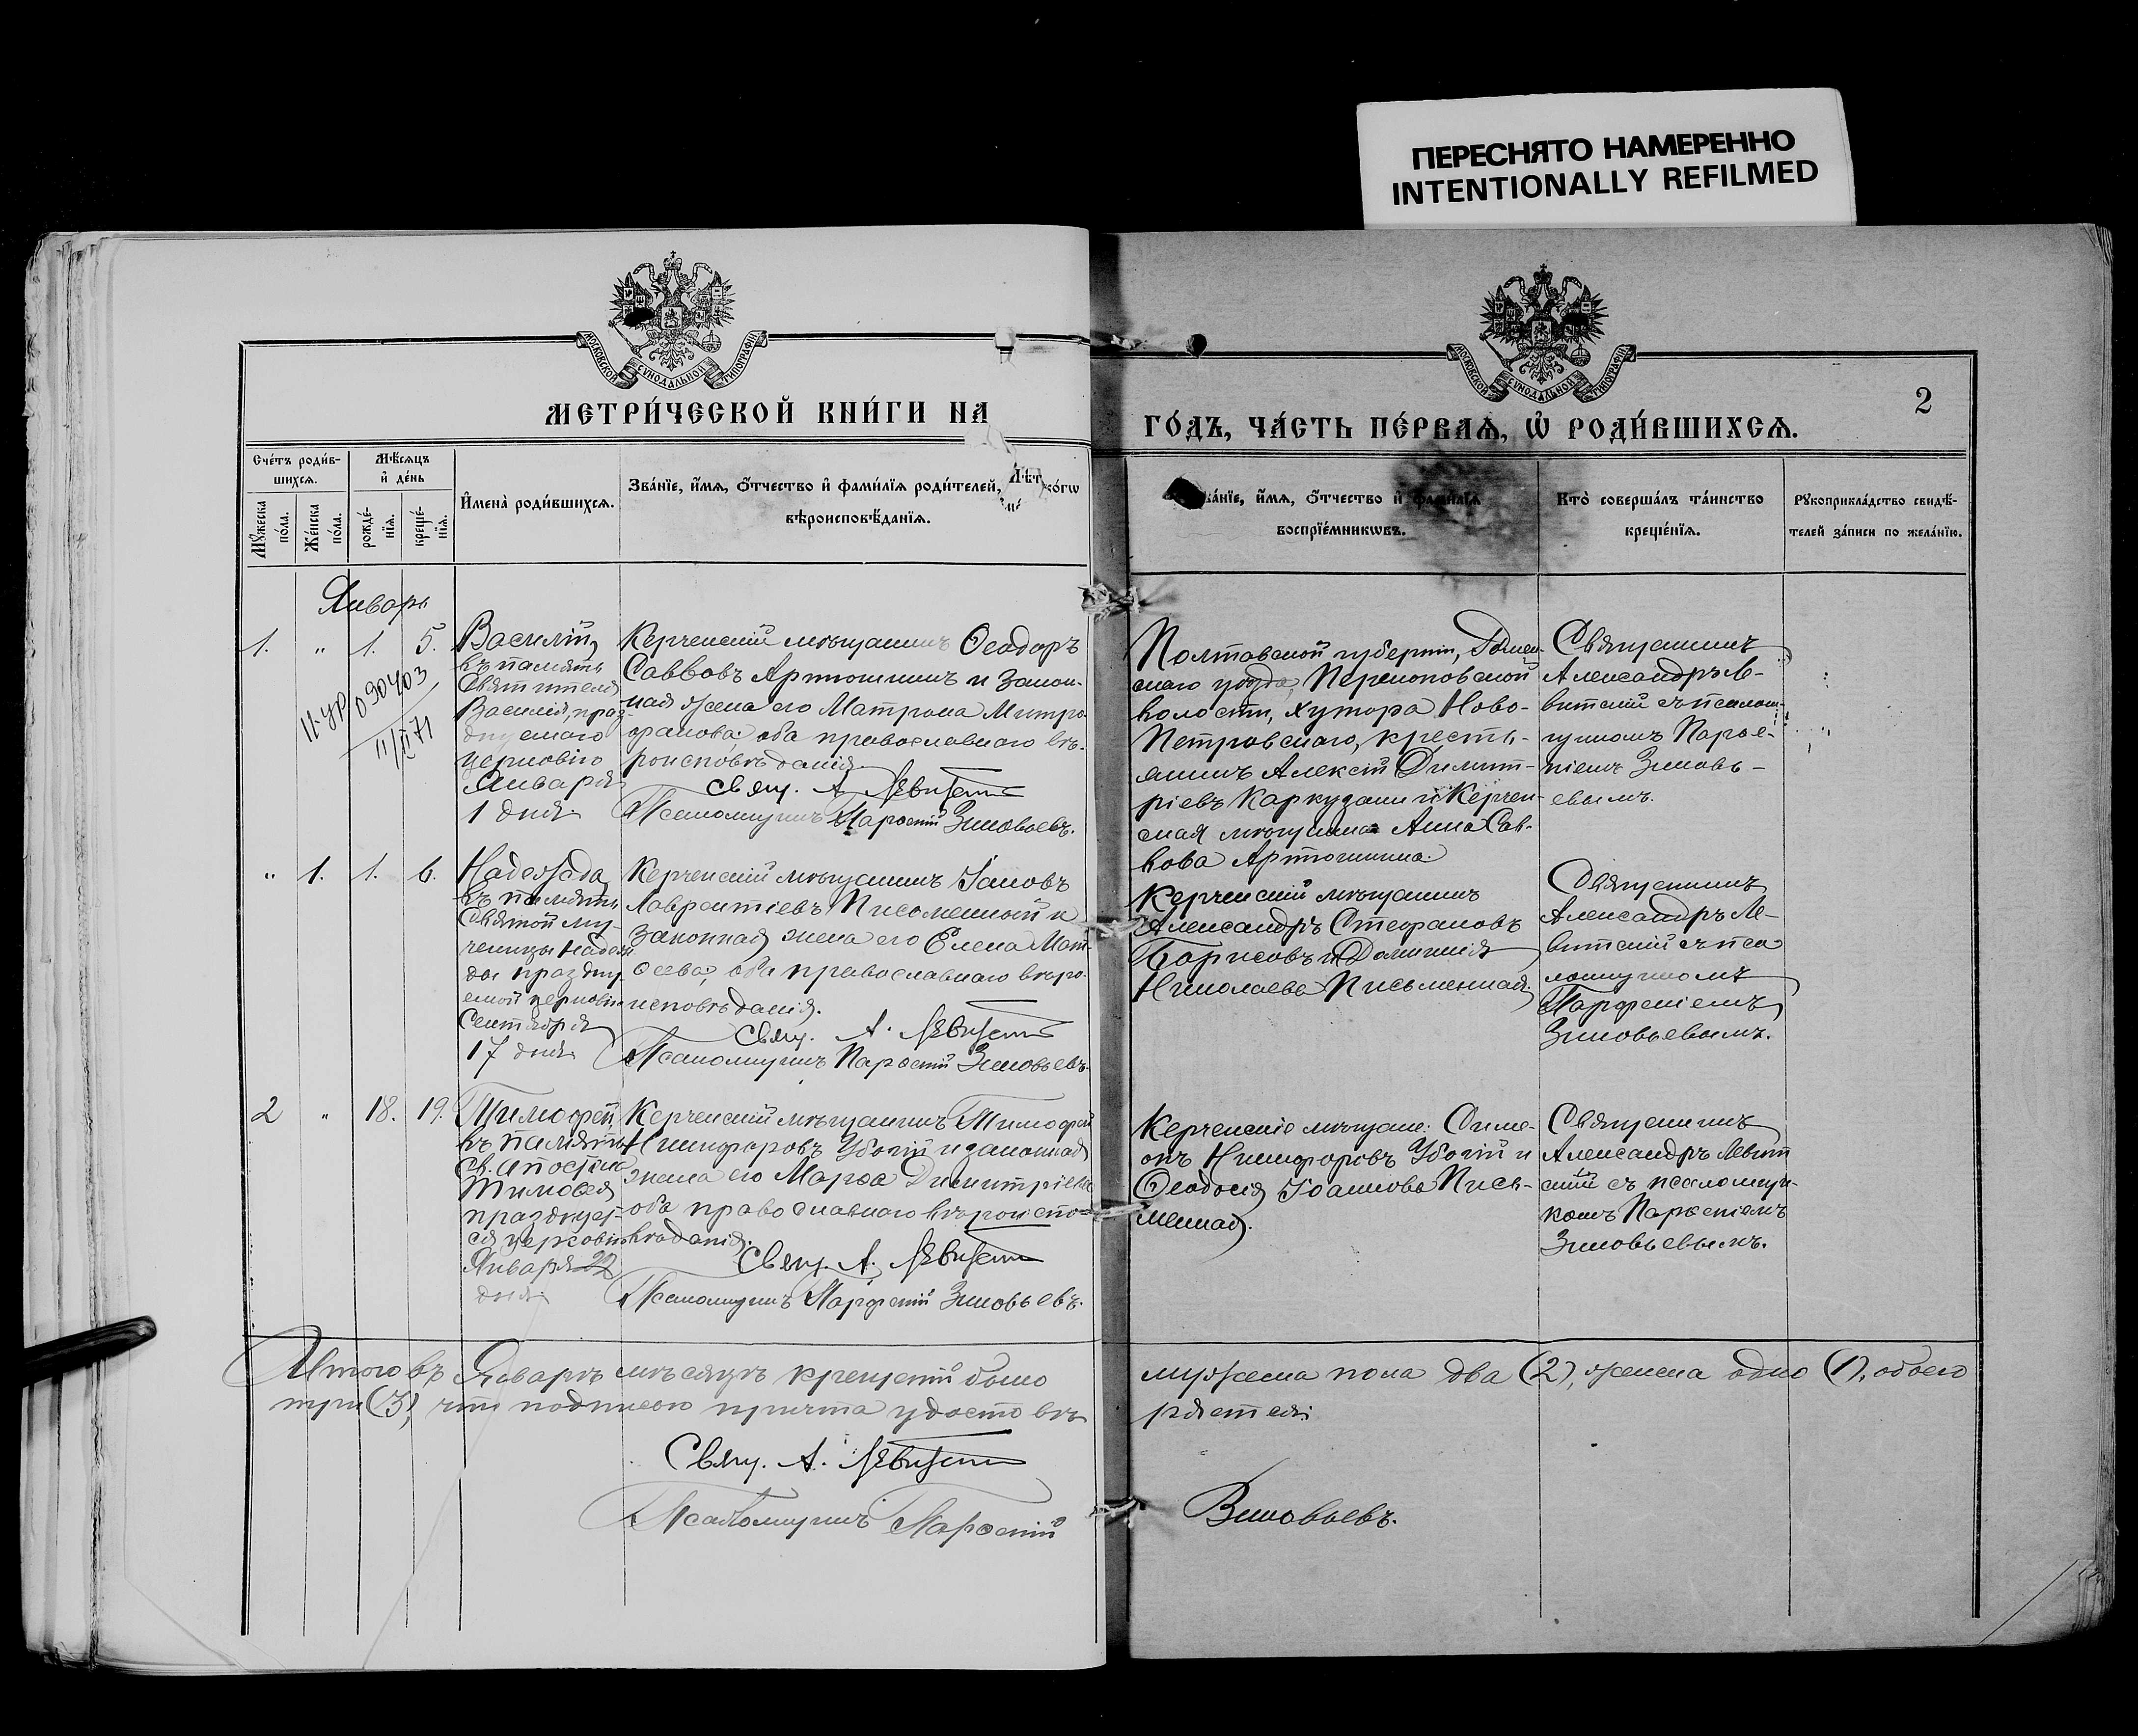 ПЕРЕСНЯТО НАМЕРЕННО
INTENTIONALLY REFILMED
МОСКОВСКОЙ СѴНОДАЛЬНОЙ ТИПОГРАФІИ
МОСКОВСКОЙ СѴНОДАЛЬНОЙ ТИПОГРАФІИ
2
МЕТРИ́ЧЕСКОЙ КНИ́ГИ НА
ГО́ДЪ, ЧА́СТЬ ПЕ́РВАѦ, Ѡ҆ РОДИ́ВШИХСѦ.
Сче́тъ роди́в-
шихсѧ.
Мѣ́сѧцъ
и҆ де́нь
Мꙋ́жеска
по́ла.
Же́нска
по́ла.
рожде́-
нїѧ.
креще́-
нїѧ.
И҆мена̀ роди́вшихсѧ.
Зва́нїе, и҆́мѧ, ѻ҆́тчество и҆ фами́лїѧ роди́телей,
вѣроисповѣ́данїѧ.
ва́нїе, и҆́мѧ, ѻ҆́тчество и҆ фами́лїѧ
воспрїе́мникѡвъ.
Кто̀ соверша́лъ та́инство
креще́нїѧ.
Рꙋкоприкла́дство свидѣ́-
телей за́писи по жела́нїю.
Январь
1. " 1. 5.
Василій,
въ память
Святителя
Василія, праз-
днуемаго
церковію
Января
1 дня.
II-УР 090403
11/II 71
Керченскій мѣщанинъ Ѳеодоръ
Саввовъ Артюшинъ и закон-
ная жена его Матрона Митро-
фанова; оба православнаго вѣ-
роисповѣданія.
Свящ. А. Левитскій
Псаломщикъ Парѳеній Зиновьевъ.
Полтавской губерніи, Ромен-
скаго уѣзда, Перекоповской
волости, хутора Ново-
Петровскаго, кресть-
янинъ Алексій Димит-
ріевъ Каркузани и Керчен-
ская мѣщанка Анна Сав-
вова Артюшина.
Священникъ
Александръ Ле-
витскій съ псалом-
щикомъ Парѳе-
ніемъ Зиновь-
евымъ.
" 1. 1. 6.
Надежда
въ память
Святой му-
ченицы Надеж-
ды праздну-
емой церковію
Сентября
17 дня.
Керченскій мѣщанинъ Іаковъ
Лаврентіевъ Письменный и
законная жена его Елена Мат-
ѳеева; оба православнаго вѣро-
исповѣданія.
Свящ. А. Левитскій
Псаломщикъ Парѳеній Зиновьевъ.
Керченскій мѣщанинъ
Александръ Стефановъ
Борисовъ и Домникія
Николаева Письменная.
Священникъ
Александръ Ле-
витскій съ пса-
ломщикомъ
Парфеніемъ
Зиновьевымъ.
2 " 18. 19.
Тимофей,
въ память
св. Апостола
Тимоѳея
празднует-
ся церковію
Января 22
дня.
Керченскій мѣщанинъ Тимофей
Никифоровъ Убогій и законная
жена его Марѳа Димитріева
оба православнаго вѣроиспо-
вѣданія.
Свящ. А. Левитскій
Псаломщикъ Парфеній Зиновьевъ.
Керченскіе мѣщане: Симе-
онъ Никифоровъ Убогій и
Ѳеодосія Іоаннова Пись-
менная.
Священникъ
Александръ Левит-
скій съ псаломщи-
комъ Парѳеніемъ
Зиновьевымъ.
Итого въ Январѣ мѣсяцѣ крещеній было
мужеска пола два (2), женска одно (1), обоего
три (3), что подписью причта удостовѣ-
ряется:
Свящ. А. Левитскій
Псаломщикъ Парѳеній
Зиновьевъ.